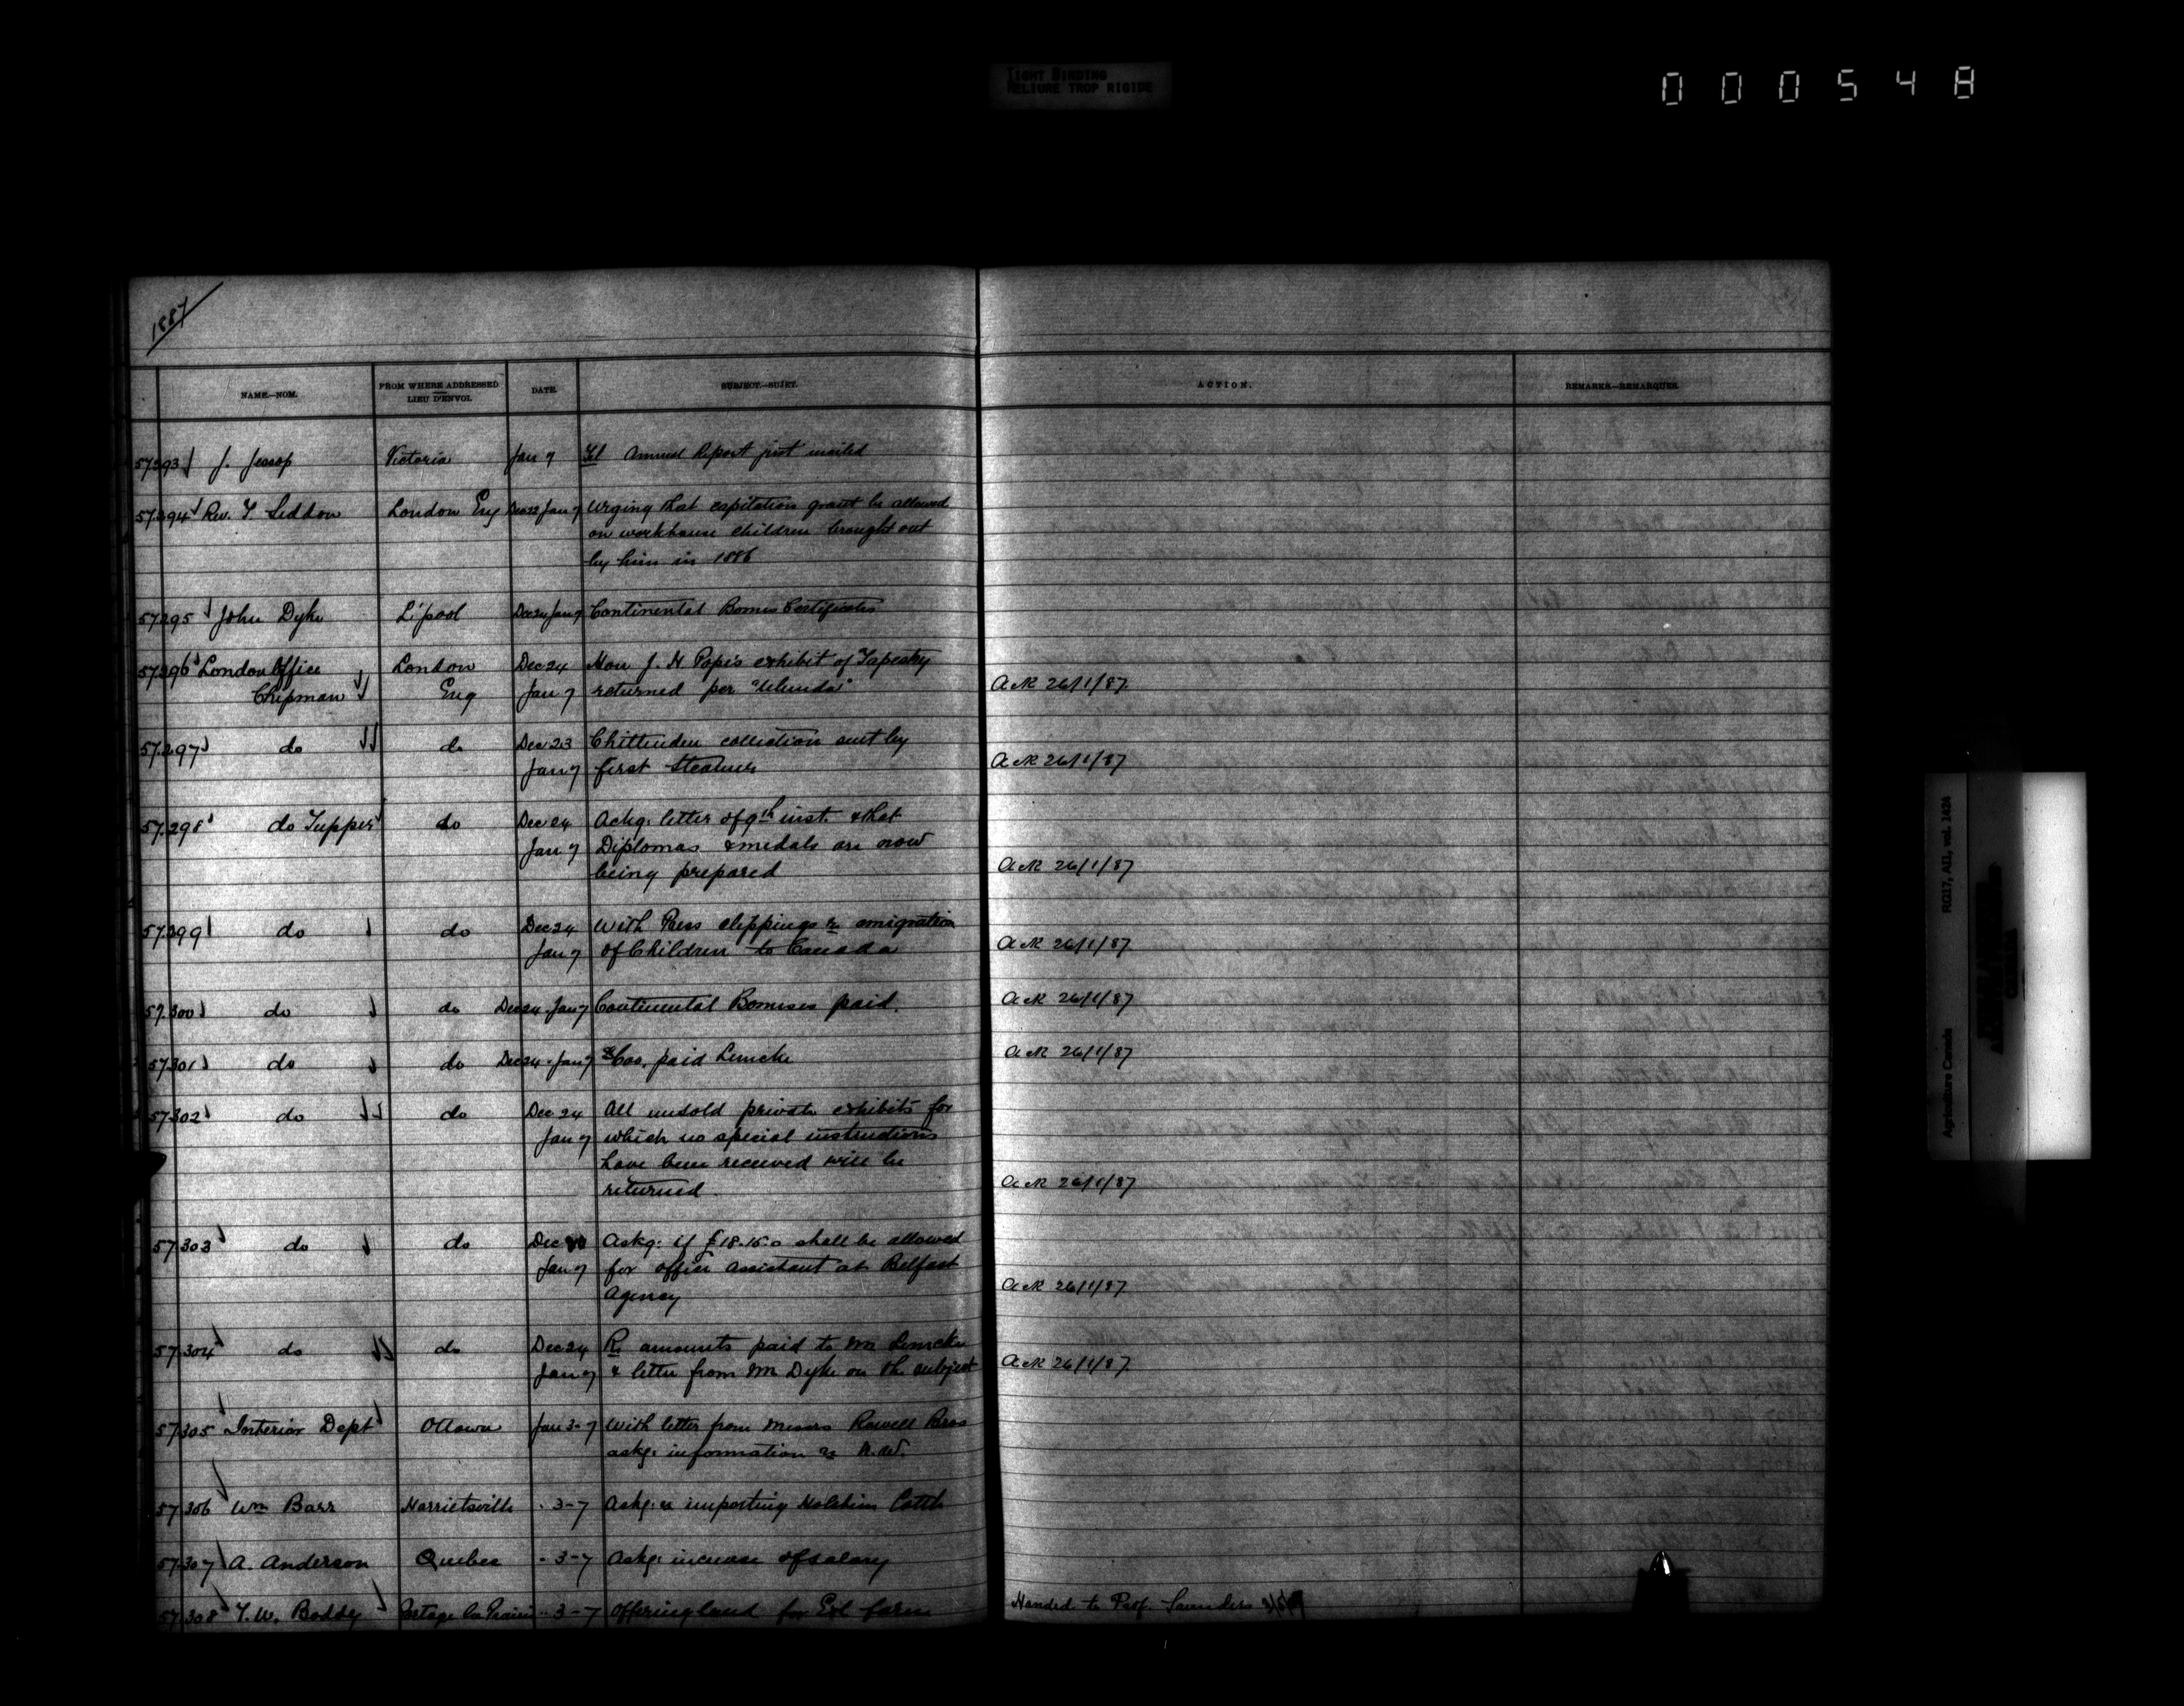 TIGHT BINDING
RELIURE TROP RIGIDE
000548
1887
NAME.—NOM.
FROM WHERE ADDRESSED
LIEU D'ENVOI.
DATE.
SUBJECT.—SUJET.
ACTION.
REMARKS—REMARQUES.
57293 J. Jessop Victoria Jan 7 Tel Annual Report just mailed
57294 Rev. Y Seddon London Eng Dec 22 Jan 7 Urging that capitation grant be allowed
on workhouse children brought out
by him in 1886
57295 John Dyke L'pool Dec 24 Jan 7 Continental Bonus Certificates
57296 London Office London Dec 24 Hon J. H Pope's exhibit of Tapestry
Chipman Eng Jan 7 returned per "Ulunda" Ack 26/1/87.
57.297 do do Dec 23 Chittenden collection sent by
Jan 7 first steamer Ack 26/1/87
57.298 do Tupper do Dec 24 Ackg. letter of 9th inst. & that
Jan 7 Diplomas & medals are now
being prepared Ack 26/1/87
57.299 do do Dec 24 With Press clippings re emigration
Jan 7 of Children to Canada Ack 26/1/87
57.300 do do Dec 24 Jan 7 Continental Bonuses paid. Ack 26/1/87
57301 do do Dec 24 Jan 7 paid Lemcke Ack 26/1/87
57302 do do Dec 24 All unsold private exhibits for
Jan 7 which no special instructions
have been received will be
returned. Ack 26/1/87
57303 do do Dec Askg. if £18.15.0 shall be allowed
Jan 7 for office assistant at Belfast
Agency Ack 26/1/87
57304 do do Dec 24 Re amounts paid to Mr Lemcke
Jan 7 & letter from Mr Dyke on the subject Ack 26/1/87.
57305 Interior Dept Ottawa Jan 3-7 With letter from Messrs Rowell Bros
askg. information re N.W.
57306 Wm Barr Harrietsville " 3-7 Askg. re importing Holstein Cattle
57307 A. Anderson Quebec " 3-7 Askg. increase of salary
57308 T.W. Boddy Portage La Prairie " 3-7 Offering land for Exl farm Handed to Prof. Saunders
Agriculture Canada RG17, AII, vol. 1424